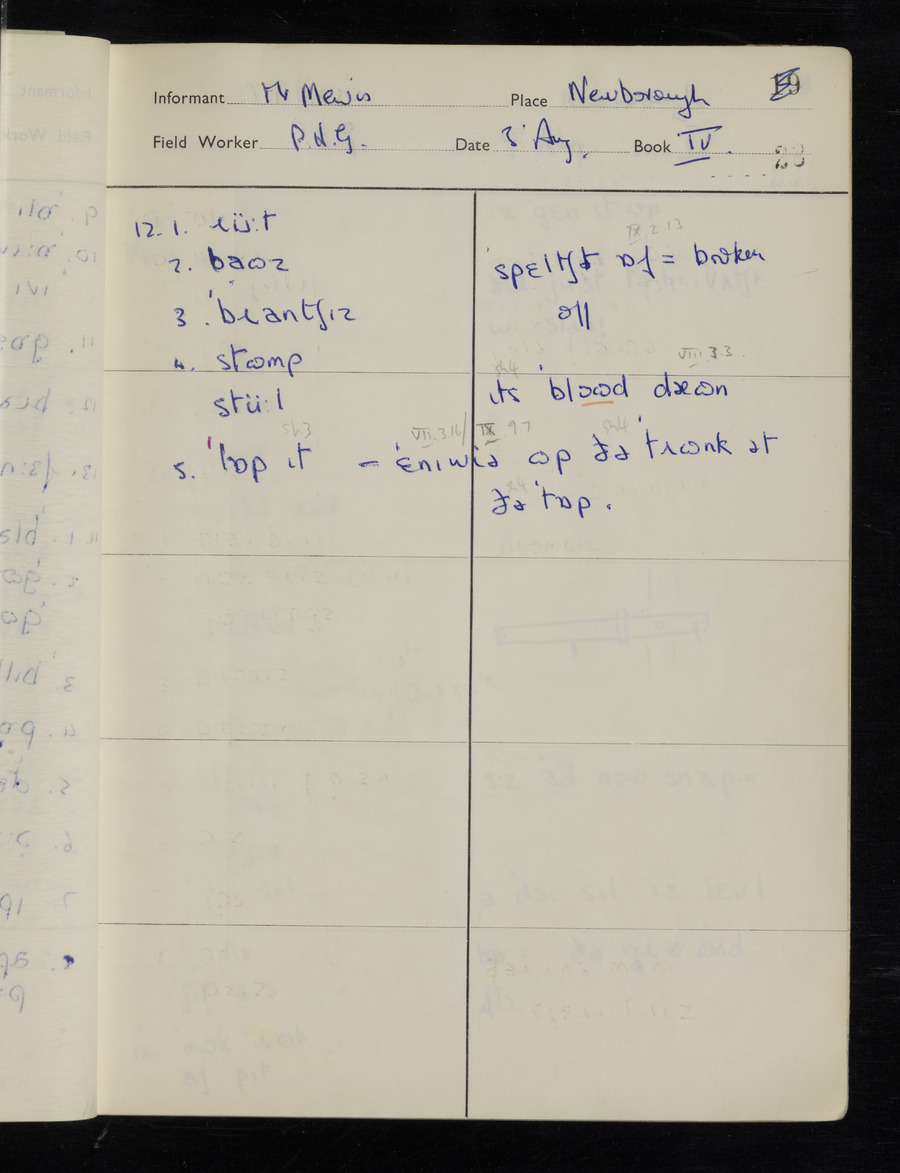 Informant Mr Mewis Place Newborough 19
Field Worker P.H.G. Date 3 Aug. Book IV.
12. 1. ɹü:t
2. baʊz
3. ˈbɹantʃɪz
4. stʊmp
stü:l
5. ˈlɒp ɪt – ˈɛnɪwɪə ʊp ðə ˈtɹʊnk ət
ðə ˈtɒp.
IX.2.13
ˈspɛltʃt ɒf = broken
off
VIII 3.3.
ɪts ˈblʊʊd dæʊn
sh3 VII.3.16/ IX 9 7 sh4